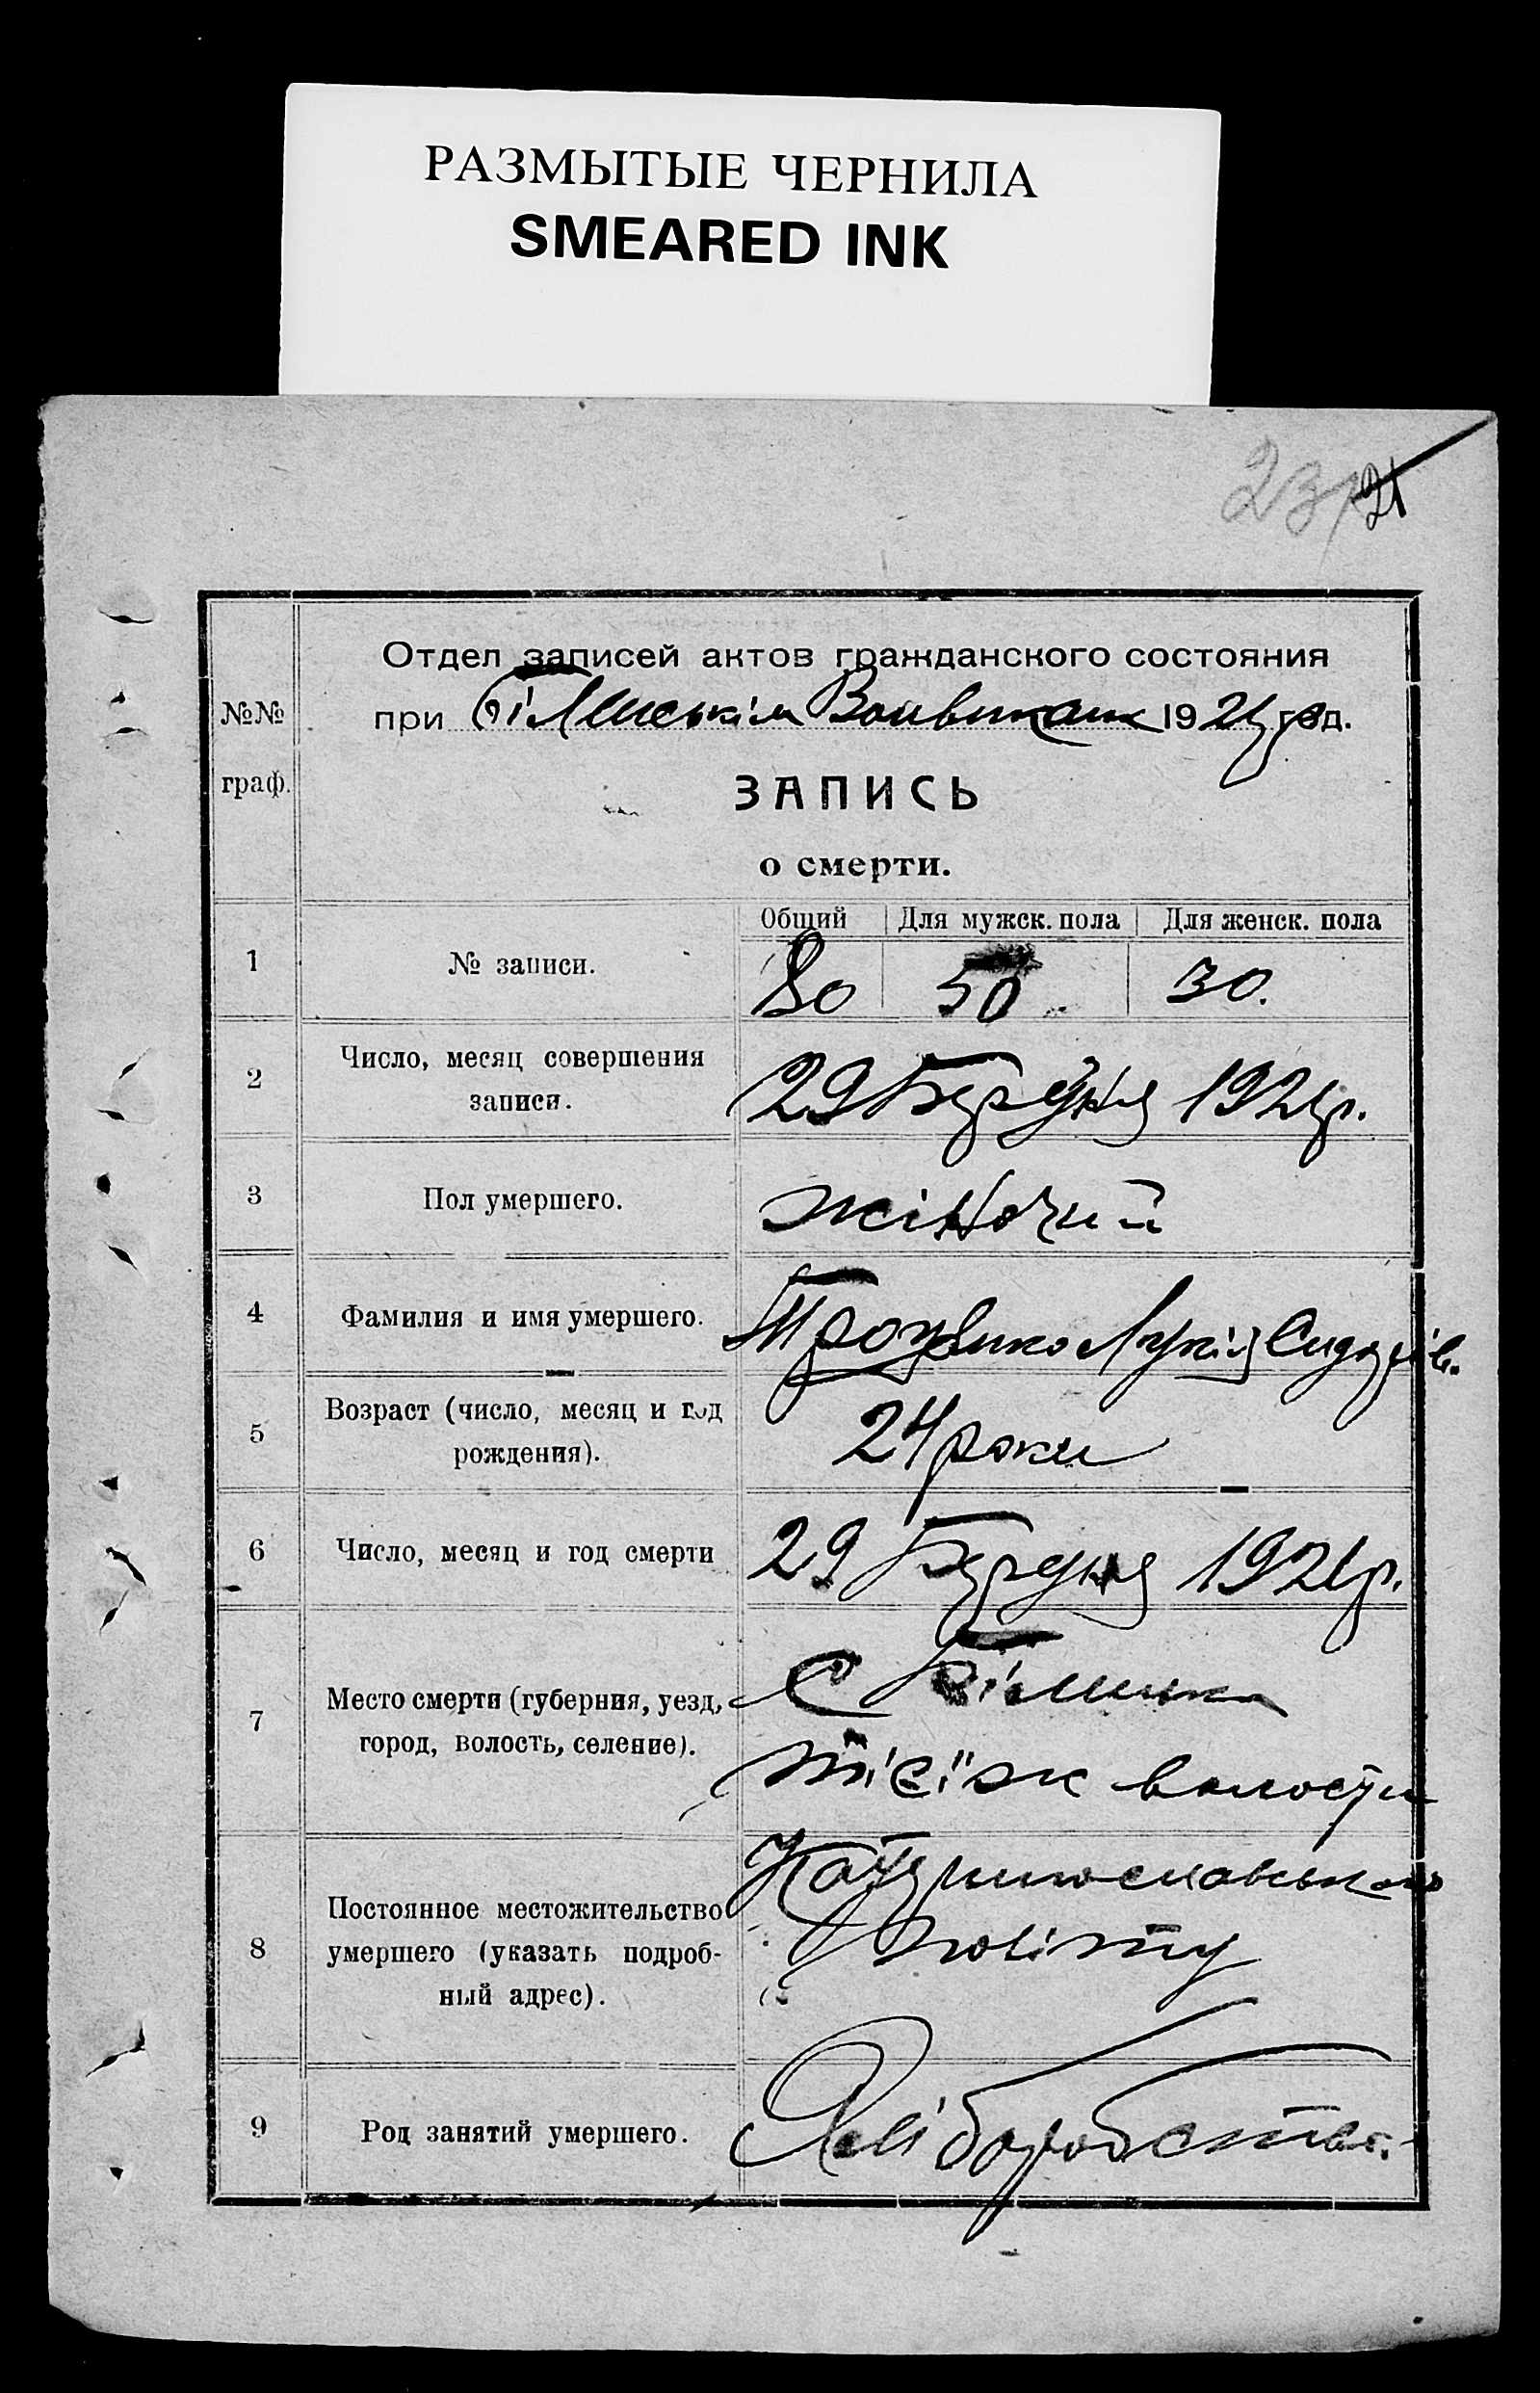 РАЗМЫТЫЕ ЧЕРНИЛА
SMEARED INK
23
21
Отдел записей актов гражданского состояния
№№ при Білицькім Волвиконк 1921 год.
граф.
ЗАПИСЬ
о смерти.
Общий Для мужск. пола Для женск. пола
1 № записи. 80 50 30.
2 Число, месяц совершения
записи. 29 Березня 1921р.
3 Пол умершего. жіночий
4 Фамилия и имя умершего. Лукія Сидорів.
5 Возраст (число, месяц и год
рождения). 24 роки
6 Число, месяц и год смерти 29 Березня 1921р.
С
7 Место смерти (губерния, уезд,
город, волость, селение).
тієїж волости
Катеринославського
8 Постоянное местожительство
умершего (указать подроб-
ный адрес). Повіту
9 Род занятий умершего. Хліборобство.